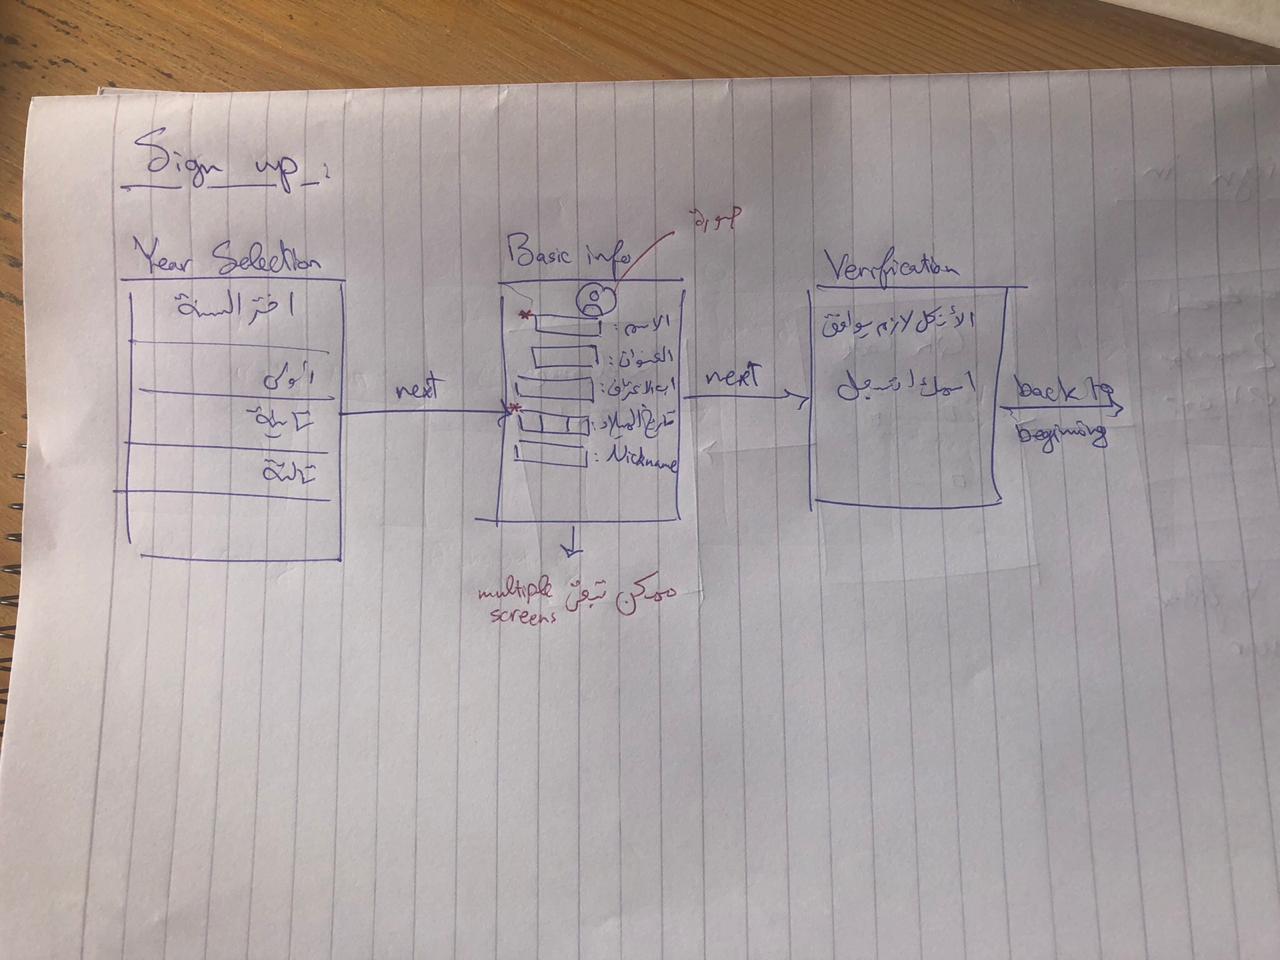 Sign up :
Year Selection
اختر السنة
اولى
تانية
تالتة
next
Basic info
صورة
* الاسم:
العنوان:
اب الاعتراف:
* تاريخ الميلاد:
Nickname :
ممكن تبقى multiple
screens
next
Verification
لازم يوافق
back to
beginning